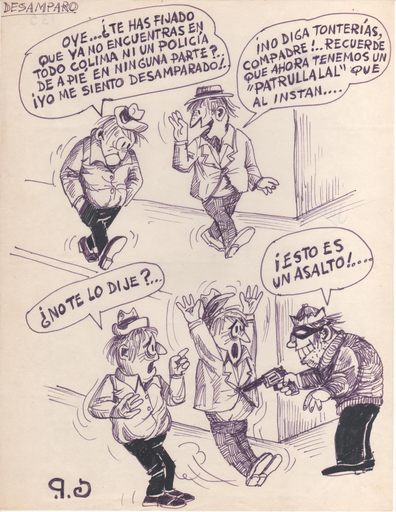 DESAMPARO
OYE...¿TE HAS FIJADO
QUE YA NO ENCUENTRAS EN
TODO COLIMA NI UN POLICÍA
DE A PIE EN NINGUNA PARTE?..
¡YO ME SIENTO DESAMPARADO!..
¡NO DIGA TONTERÍAS,
COMPADRE!.. RECUERDE
QUE AHORA TENEMOS UN
"PATRULLALAL" QUE
AL INSTAN....
¿NO TE LO DIJE?...
¡ESTO ES
UN ASALTO!....